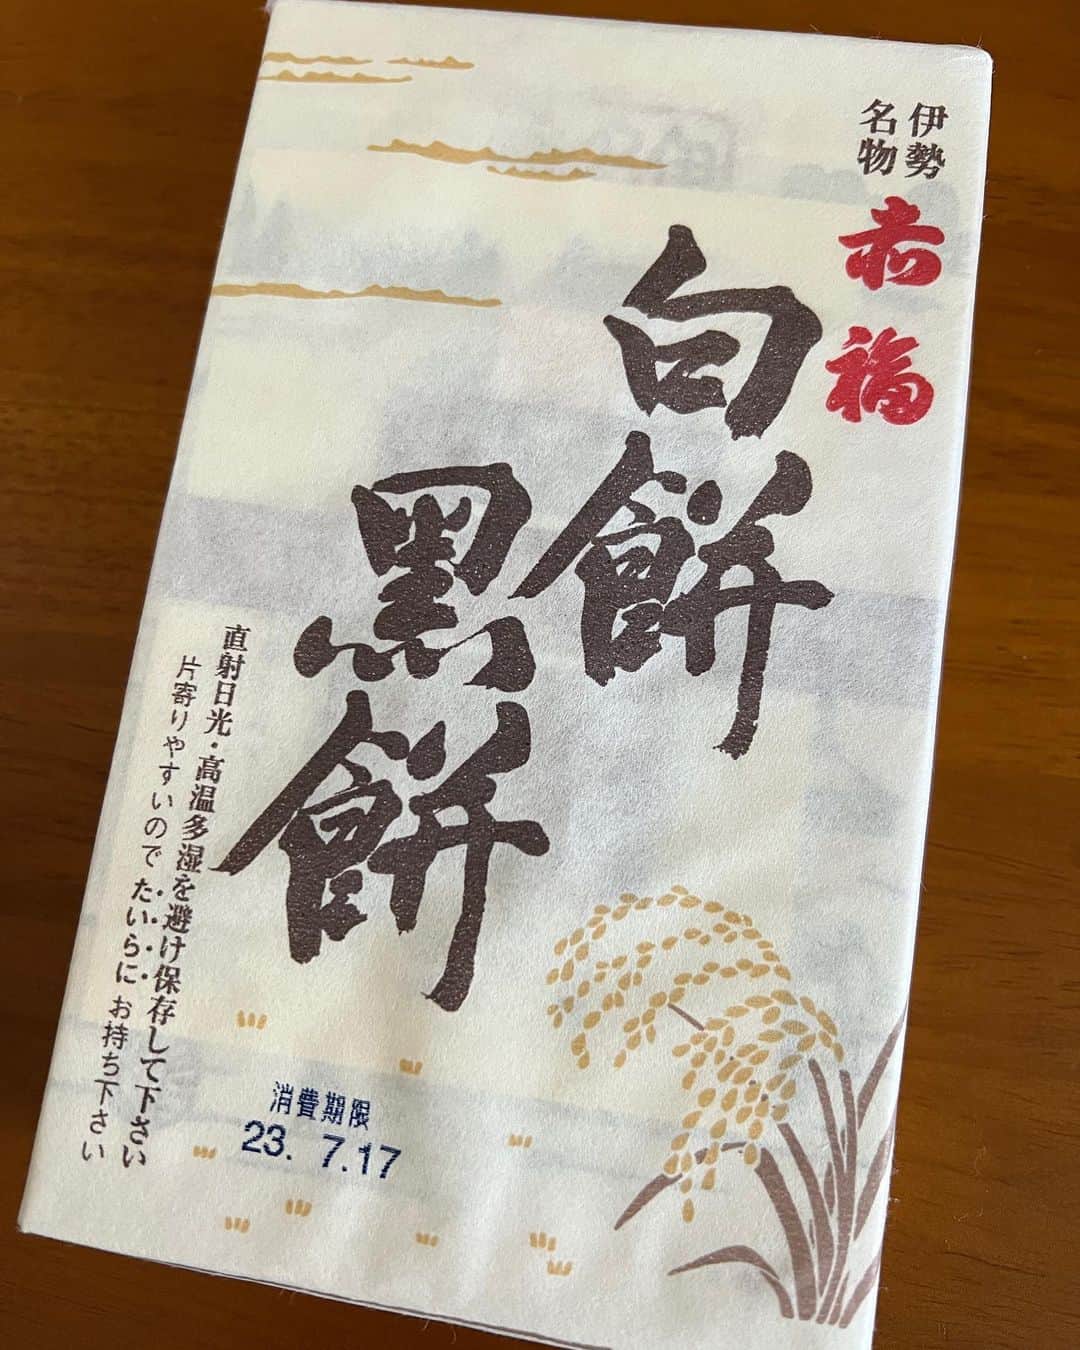 伊勢
名物
赤福
白餅
黑餅
直射日光・高温多湿を避け保存して下さい
片寄りやすいのでたいらにお持ち下さい
消費期限
23. 7.17